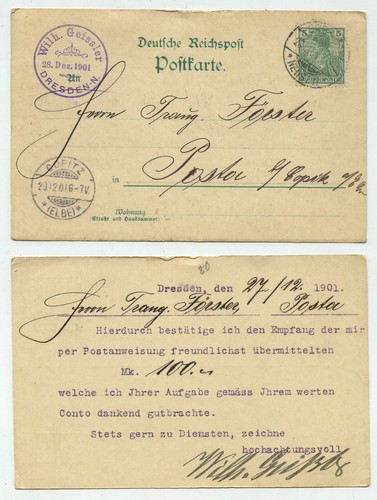 Wilh. Geissler
28. Dez. 1901
DRESDEN-N.
Deutsche Reichspost
Postkarte.
5 5
Herrn Traug. Förster
in Posta b/ Copitz
COPITZ
29/12 01 6-7V.
* (ELBE) *
Wohnung
(Straße und Hausnummer)
80
Dresden, den 27/12. 1901.
Herrn Traug. Förster, Posta
Hierdurch bestätige ich den Empfang der mir
per Postanweisung freundlichst übermittelten
Mk. 100.-
welche ich Jhrer Aufgabe gemäss Jhrem werten
Conto dankend gutbrachte.
Stets gern zu Diensten, zeichne
hochachtungsvoll
Wilh. Geißler